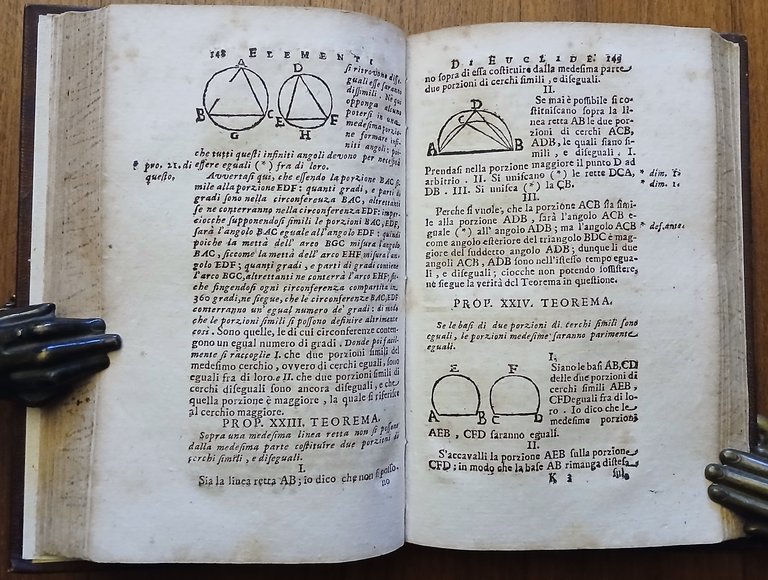 148 ELEMENTI
A D
B C E F
G H
si ritrovono dise-
guali esse saranno
dissimili. Nè qui
opponga alcuno
potersi in una
medesima porzio-
ne formare infi-
niti angoli; per-
che tutti questi infiniti angoli devono per necessità
* pro. 21. di essere eguali (*) fra di loro.
questo,
Avvertasi qui, che essendo la porzione BAC si-
mile alla porzione EDF: quanti gradi, e parti di
gradi sono nella circonferenza BAC, altrettanti
se ne conterranno nella circonferenza EDF: imper-
ciocche supponendosi simili le porzioni BAC, EDF,
sarà l'angolo BAC eguale all'angolo EDF: quindi
poiche la mettà dell' arco BGC misura l'angolo
BAC, siccome la mettà dell' arco EHF misura l'an-
golo EDF; quanti gradi, e parti di gradi contiene
l'arco BGC, altrettanti ne conterrà l'arco EHF. In-
che fingendosi ogni circonferenza compartita in
360 gradi, ne siegue, che le circonferenze BAC, EDF
conterranno un'egual numero de' gradi: di modo
che le porzioni simili si possono definire altrimente
così. Sono quelle, le di cui circonferenze conten-
gono un egual numero di gradi. Donde poi facil-
mente si raccoglie I. che due porzioni simili del
medesimo cerchio, ovvero di cerchi eguali, sono
eguali fra di loro. e II. che due porzioni simili di
cerchi diseguali sono ancora diseguali, e che
quella porzione è maggiore, la quale si riferisce
al cerchio maggiore.
PROP. XXIII. TEOREMA.
Sopra una medesima linea retta non si possono
dalla medesima parte costituire due porzioni di
cerchi simili, e diseguali.
I.
Sia la linea retta AB; io dico che non si posso-
no
DI EUCLIDE. 149
no sopra di essa costituire dalla medesima parte
due porzioni di cerchi simili, e diseguali.
II.
C D
A B
Se mai è possibile si co-
stituiscano sopra la li-
nea retta AB le due por-
zioni di cerchi ACB,
ADB, le quali siano si-
mili, e diseguali, I.
Prendasi nella porzione maggiore il punto D ad
arbitrio. II. Si uniscano (*) le rette DCA, * dim. 1.
DB. III. Si unisca (*) la CB. * dim. 1.
III.
Perche si vuole, che la porzione ACB sia simi-
le alla porzione ADB, sarà l'angolo ACB e-
guale (*) all'angolo ADB; ma l'angolo ACB * def. ante.
come angolo esteriore del triangolo BDC è mag-
giore del suddetto angolo ADB; dunque li due
angoli ACB, ADB sono nell'istesso tempo egua-
li, e diseguali; ciocche non potendo sussistere,
ne siegue la verità del Teorema in questione.
PROP. XXIV. TEOREMA.
Se le basi di due porzioni di cerchi simili sono
eguali, le porzioni medesime saranno parimente
eguali.
I.
E F
A B C D
Siano le basi AB, CD
delle due porzioni di
cerchi simili AEB,
CFD eguali fra di lo-
ro. Io dico che le
medesime porzioni
AEB, CFD saranno eguali.
II.
S'accavalli la porzione AEB sulla porzione
CFD; in modo che la base AB rimanga distesa
K 3 sul-